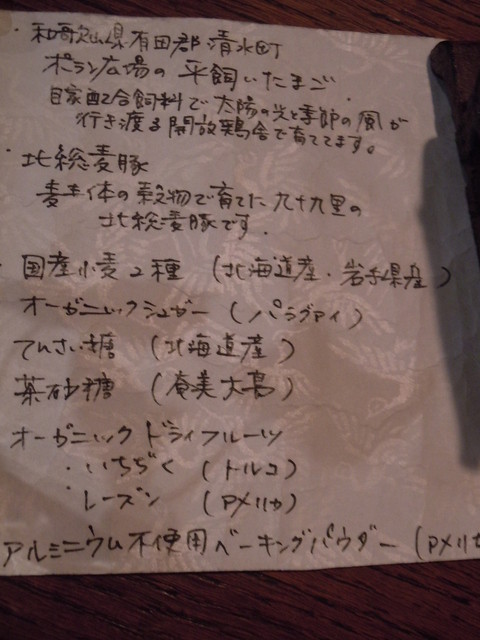 ・和歌山県有田郡清水町
ポラン広場の平飼いたまご
自家配合飼料で太陽の光と季節の風が
行き渡る開放鶏舎で育ててます。
・北総麦豚
麦主体の穀物で育てた九十九里の
北総麦豚です.
・国産小麦2種 (北海道産・岩手県産)
オーガニックシュガー (パラグァイ)
てんさい糖 (北海道産)
葉砂糖 (奄美大島)
オーガニックドライフルーツ
・いちぢく (トルコ)
・レーズン (アメリカ)
アルミニウム不使用ベーキングパウダー (アメリカ